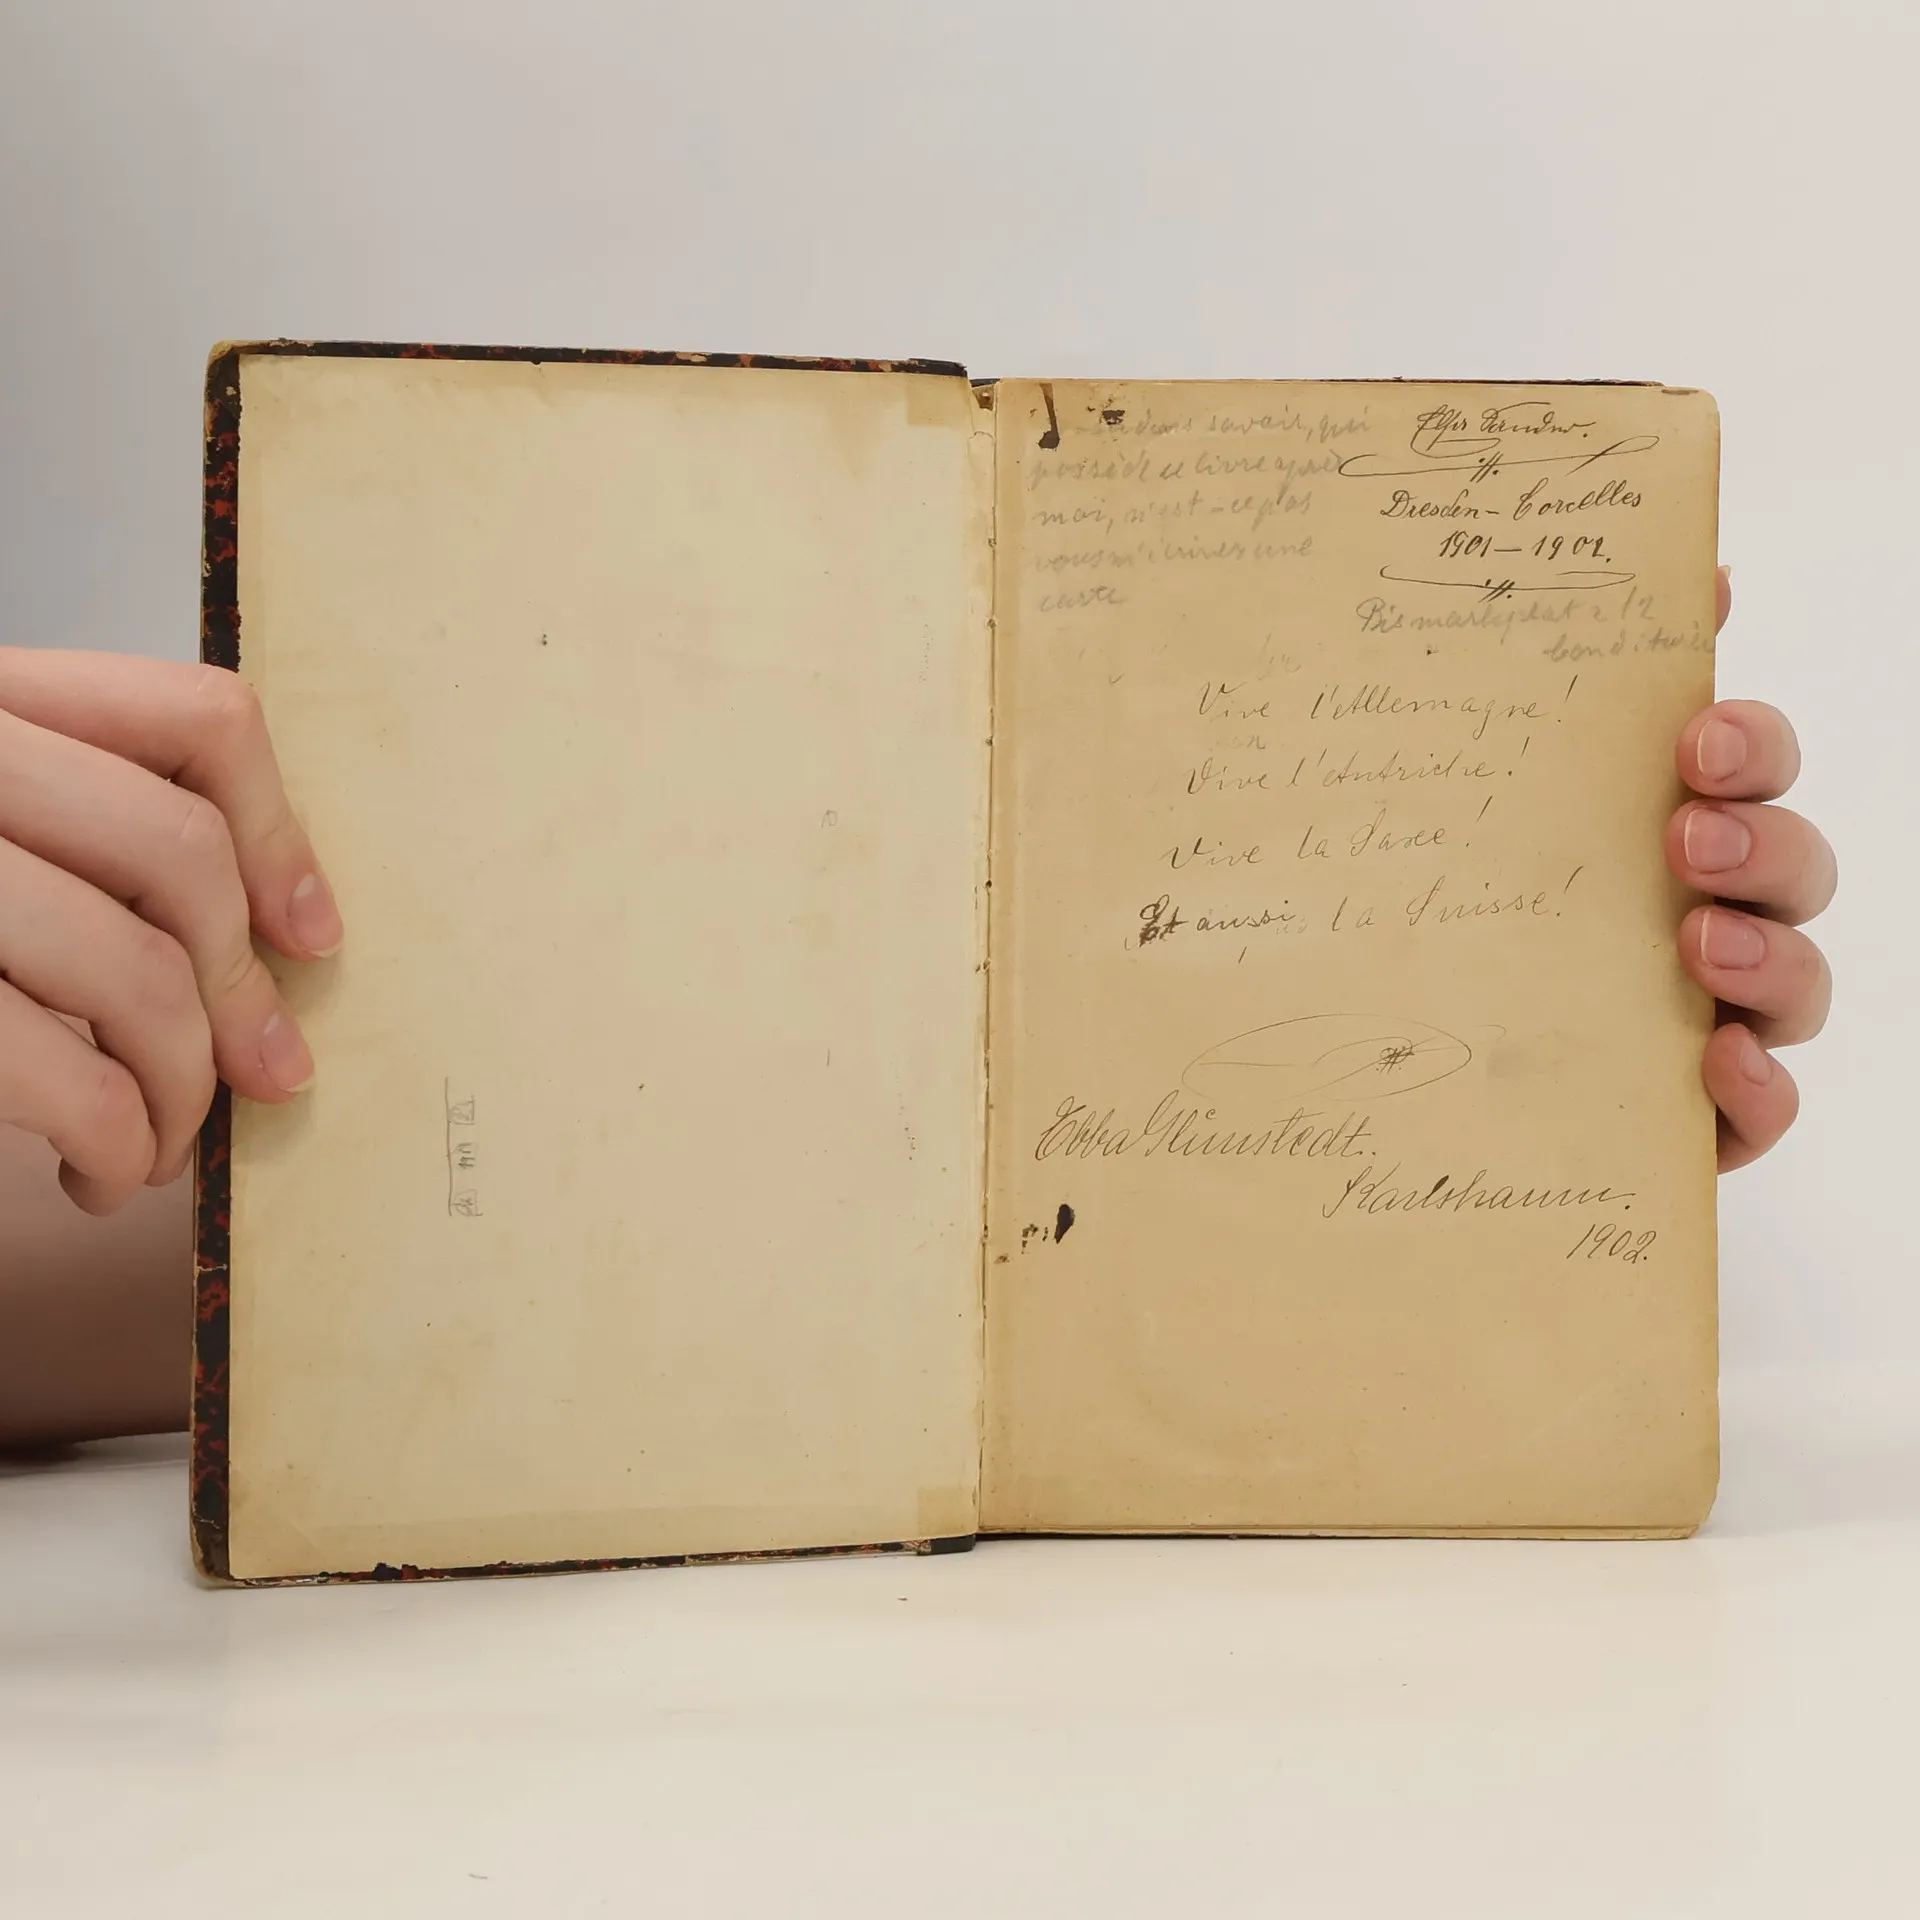 savoir, qui
possède ce livre après
moi, n'est-ce pas
vous m'écrirez une
carte
Dresden-Corcelles
1901-1902.
Bismarkplatz 12
Vive l'Allemagne!
Vive l'Autriche!
Vive la Saxe!
Et aussi la Suisse!
Ebba
Karlshamn.
1902.